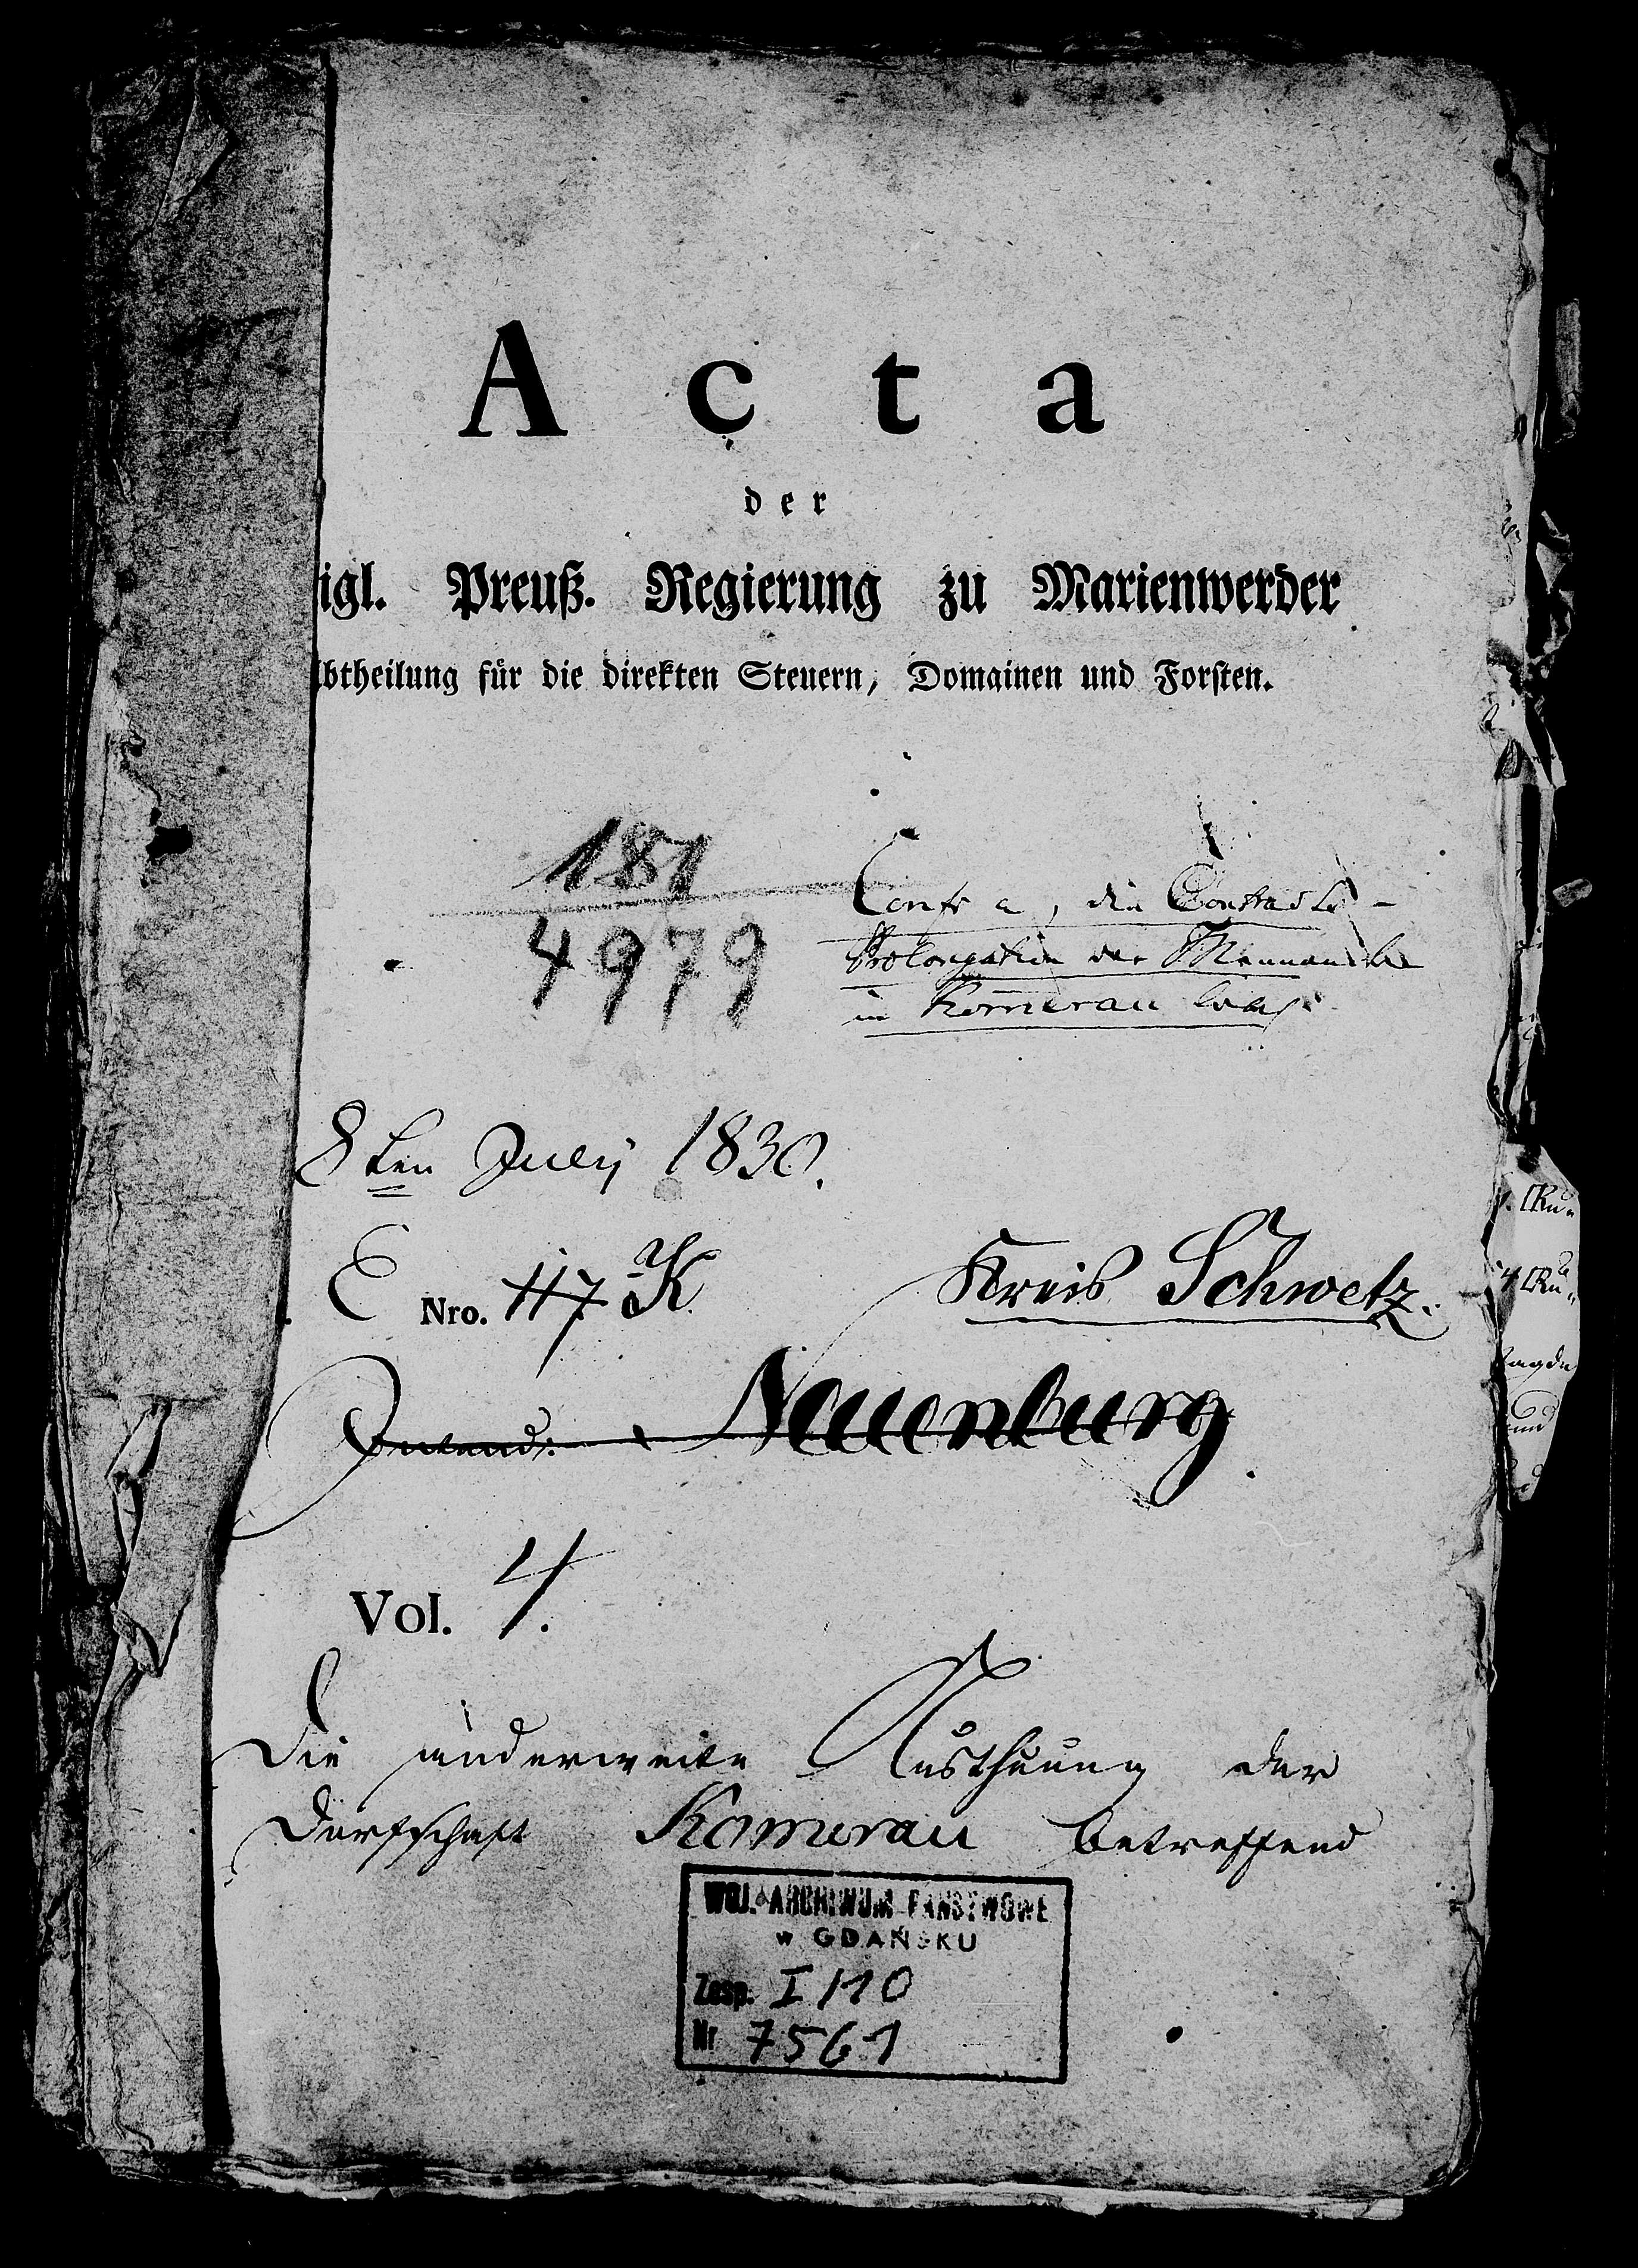 Acta
der
igl. Preuß. Regierung zu Marienwerder
btheilung für die direkten Steuern, Domainen und Forsten.
181
4979
die Contracts-
Prolongation der
in Komerau
8ten July 1830.
E Nro. 117 K
Kreis Schwetz.
Intend: Neuenburg
Vol. 4.
Die anderweite Austhuung der
Dorfschaft Komerau betreffend
WOJ. ARCHIWUM PAŃSTWOWE
w GDAŃSKU
Zesp. I/10
Nr 7561